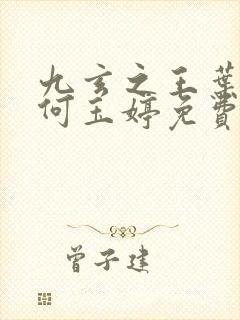 九玄之王葉
何玉婷免費
曾子建